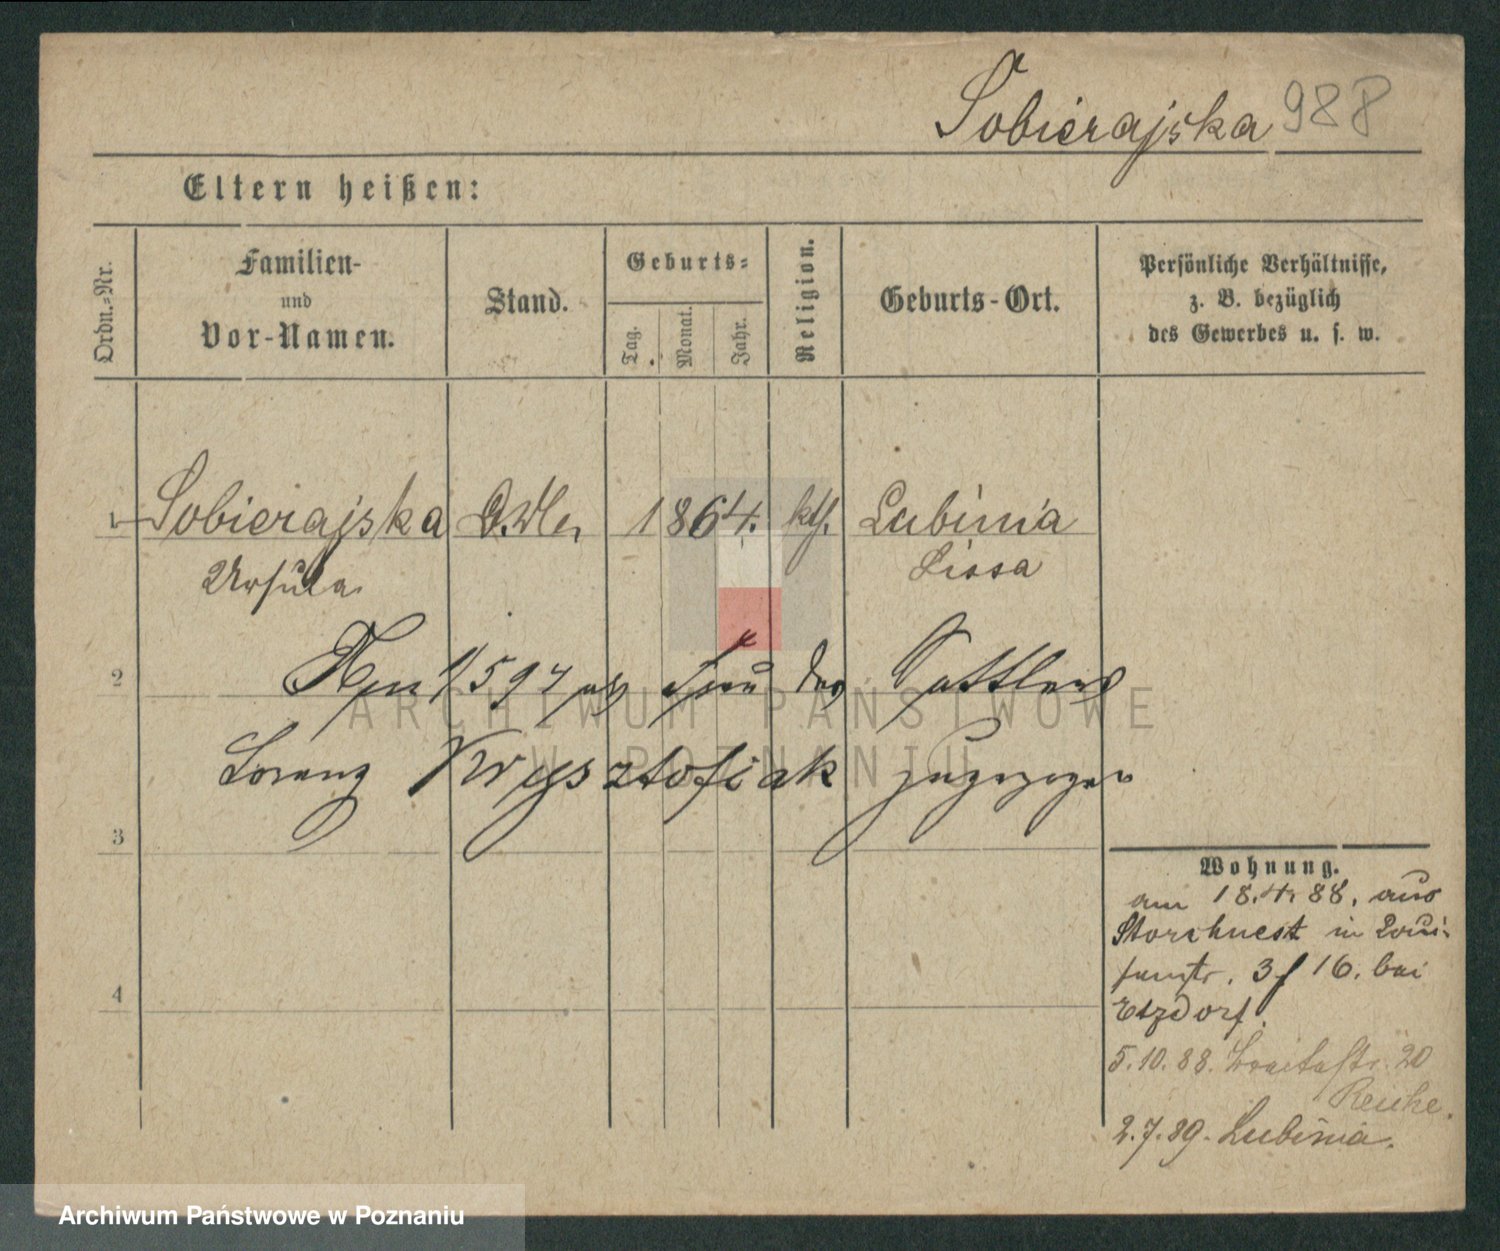 Sobierajska 988
Eltern heißen:
Ordn.-Nr.
Familien-
und
Vor-Namen.
Stand.
Geburts-
Tag.
Monat.
Jahr.
Religion.
Geburts-Ort.
Persönliche Verhältnisse,
z. B. bezüglich
des Gewerbes u. s. w.
1 Sobierajska 1864. kth. Lubinia
Ursula Lissa
2
597 Frau des Sattlers
Lorenz Krysztofiak zugezogen
ARCHIWUM PAŃSTWOWE
W POZNANIU
3
4
Wohnung.
am 18.4.88. aus
Storchnest in Loui-
senstr. 3f 16. bei
Etzdorf.
5.10.88. Breitestr. 20
Reiche.
2.7.89. Lubinia.
Archiwum Państwowe w Poznaniu